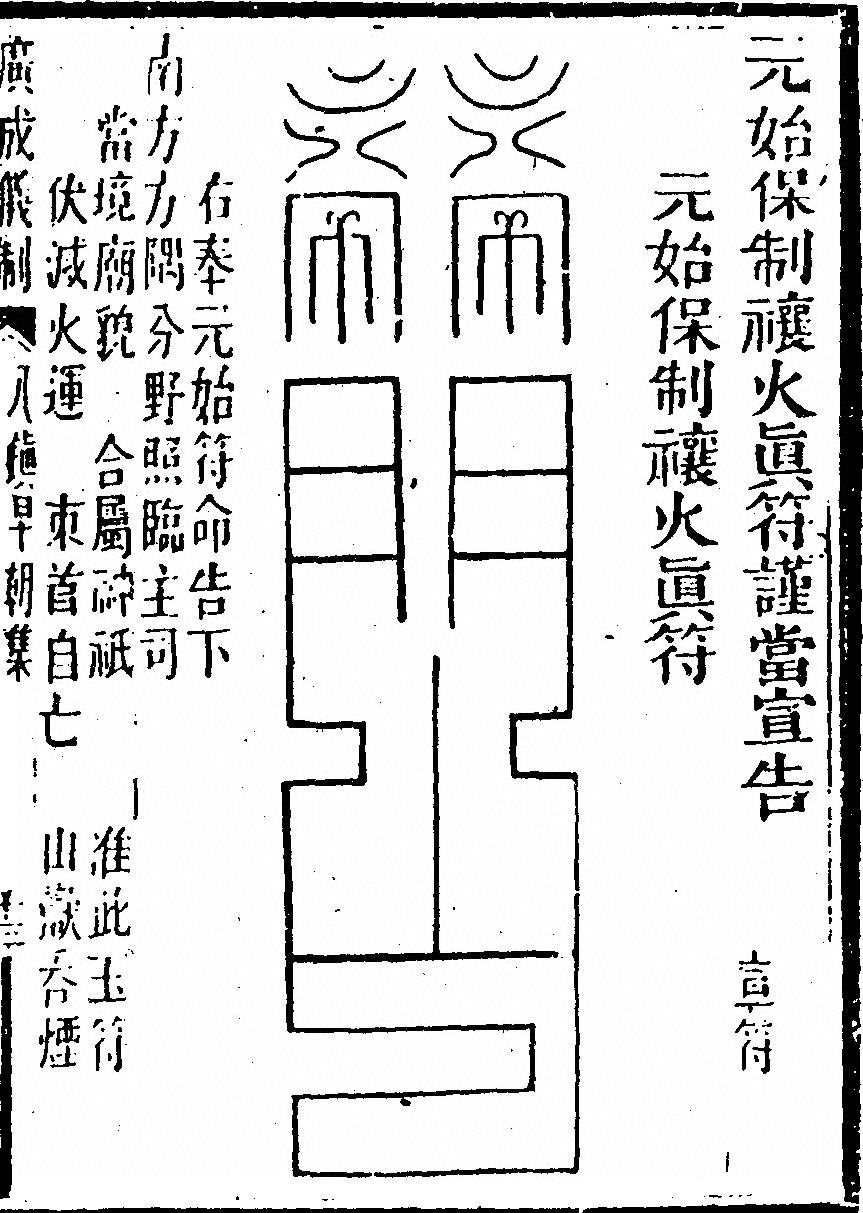 元始保制禳火眞符謹當宣告　宣符
元始保制禳火眞符
右奉元始符命告下
南方方隅分野照臨主司
當境廟貌　合屬神祇　准此玉符
伏滅火運　束首自亡　山嶽吞煙
廣成儀制　八鎮早朝集